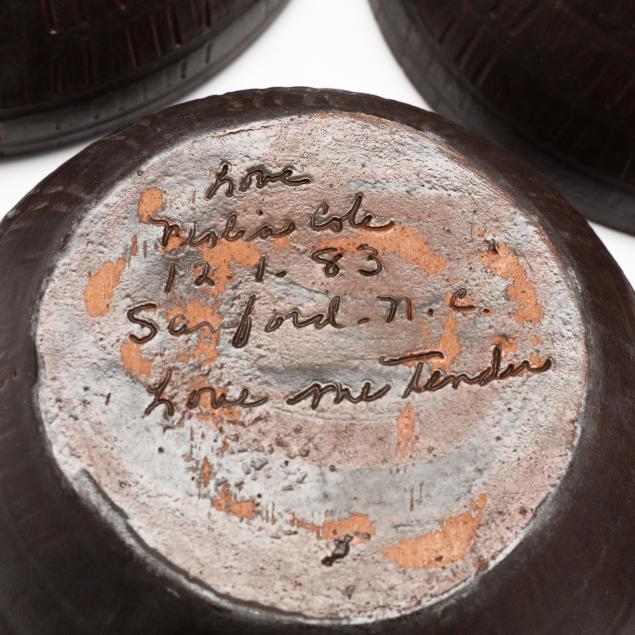 Love
Neolia Cole
12. 1. 83
Sanford. N. C.
Love me Tender